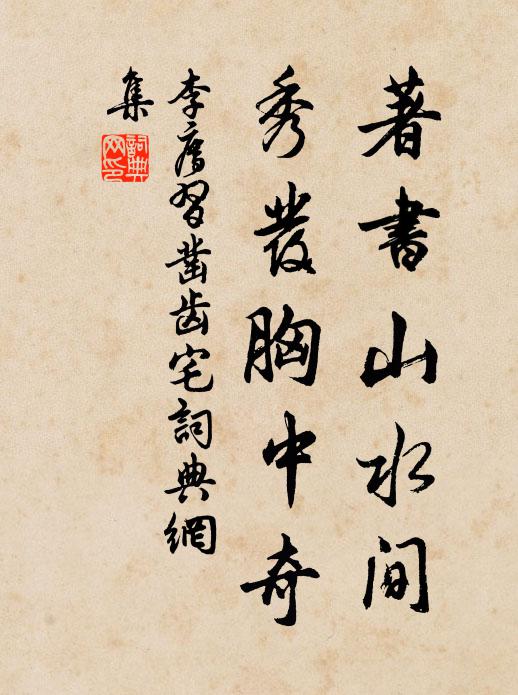 著書山水间
秀發胸中奇
李廌習凿齿宅詞典網
集
詞典
网印